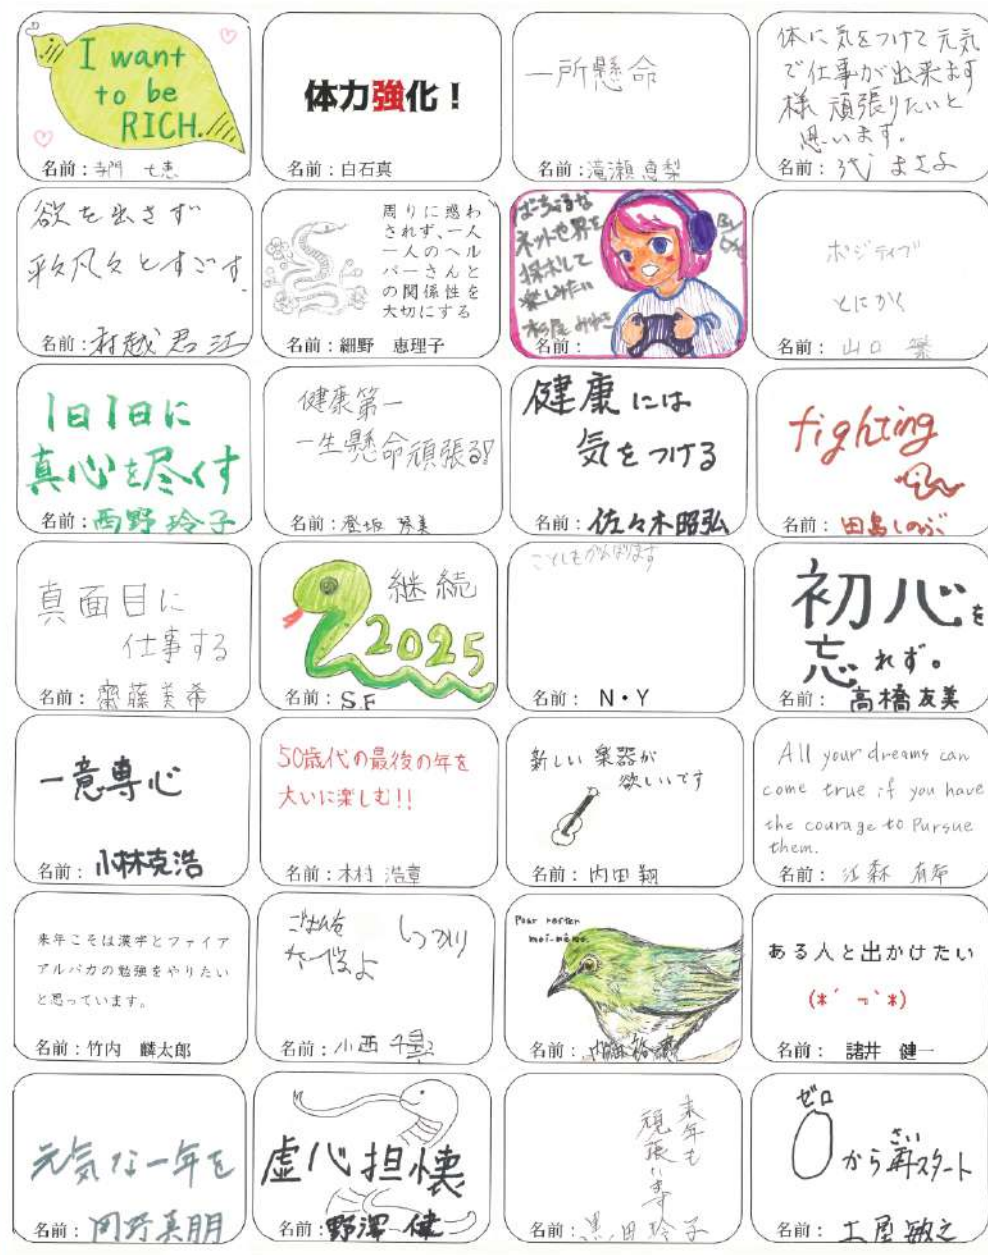 I want
to be
RICH.
名前：寺門 七恵
体力強化！
名前：白石真
一所懸命
名前：滝瀬 恵梨
体に気をつけて元気
で仕事が出来ます
様 頑張りたいと
思います。
名前： まさよ
欲を出さず
平々凡々とすごす
名前：村越 君江
周りに惑わ
されず、一人
一人のヘル
パーさんと
の関係性を
大切にする
名前：細野 恵理子
ばーちゃるな
ネット世界を
探求して
楽しみたい
名前：
ポジティブ
とにかく
名前：山口 繁
1日1日に
真心を尽くす
名前：西野 玲子
健康第一
一生懸命頑張る!!
名前：登坂 琴美
健康には
気をつける
名前：佐々木昭弘
fighting
名前：田島しのぶ
真面目に
仕事する
名前：齋藤美希
継続
2025
名前：S.F
ことしもがんばります
名前：N・Y
初心を
忘れず。
名前：高橋友美
一意専心
名前：小林克浩
50歳代の最後の年を
大いに楽しむ!!
名前：木村 浩章
新しい楽器が
欲しいです
名前：内田 翔
All your dreams can
come true if you have
the courage to Pursue
them.
名前：江森 有希
来年こそは漢字とファイア
アルパカの勉強をやりたい
と思っています。
名前：竹内 麟太郎
ごはんを
しっかり
名前：小西
Pour rester
moi-même.
名前：
ある人と出かけたい
(*´ ｰ`*)
名前：諸井 健一
元気な一年を
名前：岡野真朋
虚心担懐
名前：野澤 健
来年も
頑張います
名前：黒田玲子
ゼロ
0から再スタート
さい
名前：土屋敏之